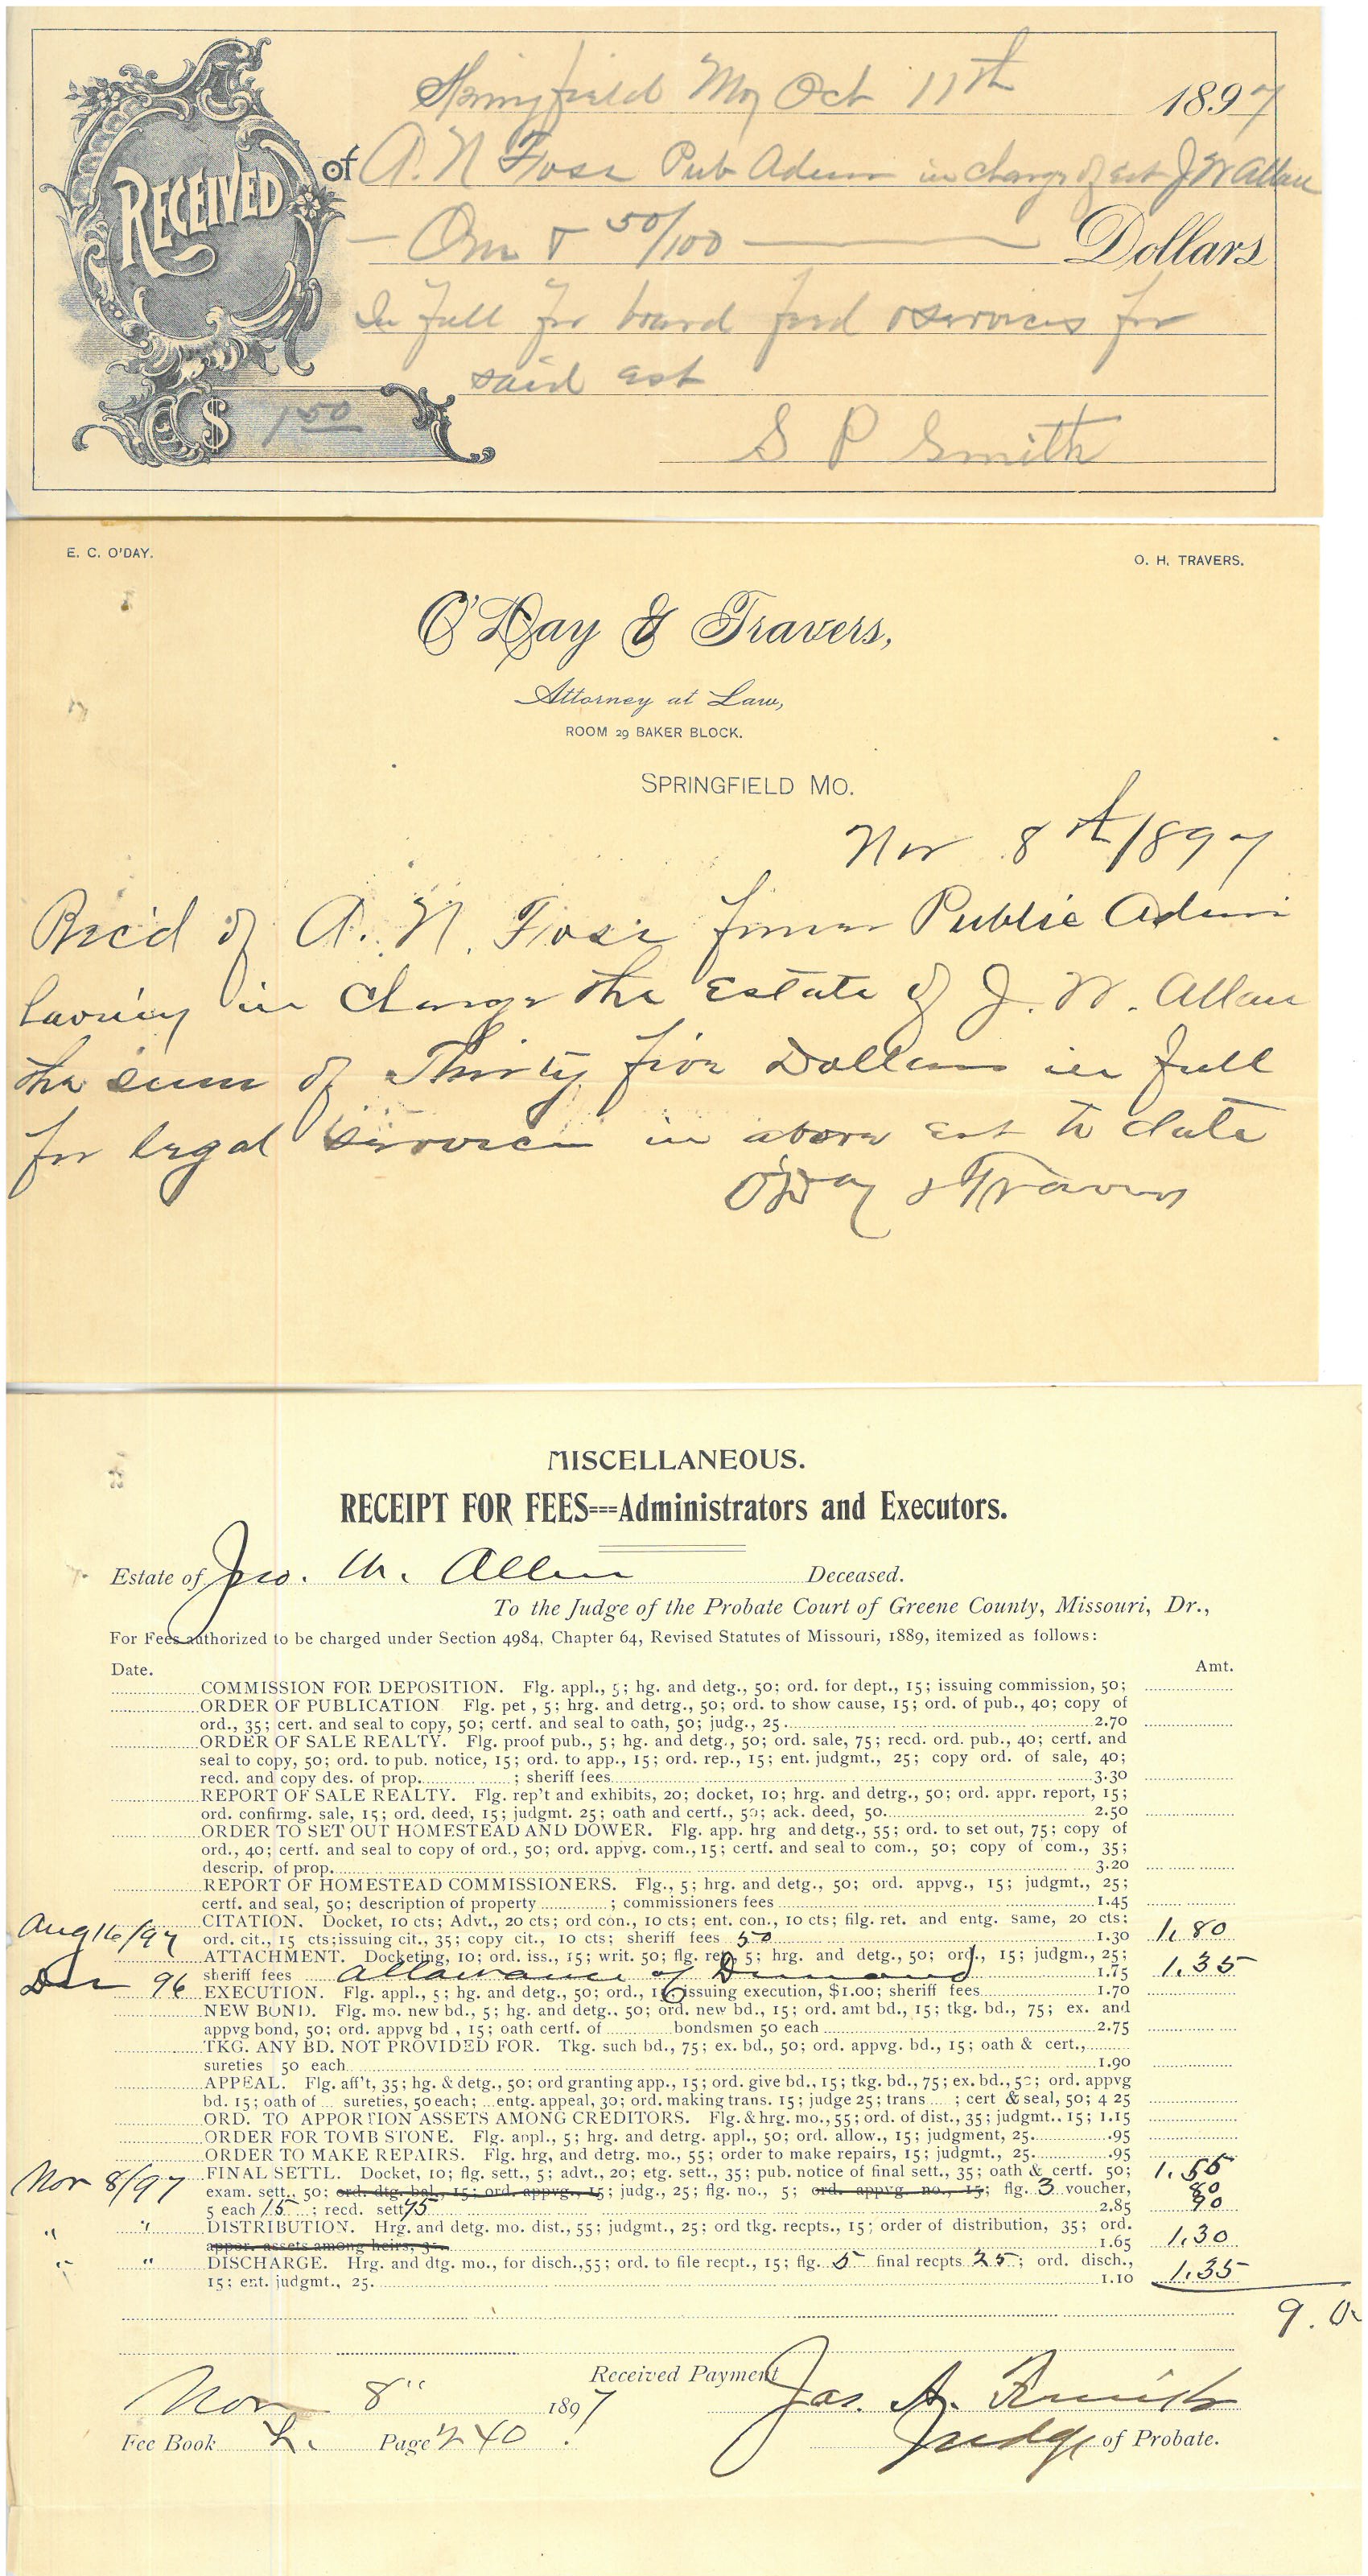 Springfield Mo Oct 11th 1897
RECEIVED of A. N. Pub Admin in charge of est J W Allen
— One & 50/100 — Dollars
In full for board feed & services for
said est
$ 1 50
S P Smith
E. C. O'DAY.
O. H. TRAVERS.
O'Day & Travers,
Attorney at Law,
ROOM 29 BAKER BLOCK.
SPRINGFIELD MO.
Nov 8th/1897
Rec'd of A. N. former Public Admin
having in charge the Estate of J. W. Allen
the sum of Thirty five Dollars in full
for legal services in above est to date
O'Day & Travers
MISCELLANEOUS.
RECEIPT FOR FEES===Administrators and Executors.
Estate of Jno. W. Allen Deceased.
To the Judge of the Probate Court of Greene County, Missouri, Dr.,
For Fees authorized to be charged under Section 4984, Chapter 64, Revised Statutes of Missouri, 1889, itemized as follows:
Date. Amt.
COMMISSION FOR DEPOSITION. Flg. appl., 5; hg. and detg., 50; ord. for dept., 15; issuing commission, 50;
ORDER OF PUBLICATION Flg. pet , 5; hrg. and detrg., 50; ord. to show cause, 15; ord. of pub., 40; copy of
ord., 35; cert. and seal to copy, 50; certf. and seal to oath, 50; judg., 25 2.70
ORDER OF SALE REALTY. Flg. proof pub., 5; hg. and detg., 50; ord. sale, 75; recd. ord. pub., 40; certf. and
seal to copy, 50; ord. to pub. notice, 15; ord. to app., 15; ord. rep., 15; ent. judgmt., 25; copy ord. of sale, 40;
recd. and copy des. of prop. ; sheriff fees 3.30
REPORT OF SALE REALTY. Flg. rep't and exhibits, 20; docket, 10; hrg. and detrg., 50; ord. appr. report, 15;
ord. confirmg. sale, 15; ord. deed, 15; judgmt. 25; oath and certf., 50; ack. deed, 50. 2.50
ORDER TO SET OUT HOMESTEAD AND DOWER. Flg. app. hrg and detg., 55; ord. to set out, 75; copy of
ord., 40; certf. and seal to copy of ord., 50; ord. appvg. com., 15; certf. and seal to com., 50; copy of com., 35;
descrip. of prop. 3.20
REPORT OF HOMESTEAD COMMISSIONERS. Flg., 5; hrg. and detg., 50; ord. appvg., 15; judgmt., 25;
certf. and seal, 50; description of property ; commissioners fees 1.45
Aug 16/97 CITATION. Docket, 10 cts; Advt., 20 cts; ord con., 10 cts; ent. con., 10 cts; filg. ret. and entg. same, 20 cts;
ord. cit., 15 cts;issuing cit., 35; copy cit., 10 cts; sheriff fees 50 1.30 1.80
ATTACHMENT. Docketing, 10; ord. iss., 15; writ. 50; flg. rep. 5; hrg. and detg., 50; ord., 15; judgm., 25;
sheriff fees Allowance of Demand 1.75 1.35
Dec 96 EXECUTION. Flg. appl., 5; hg. and detg., 50; ord., 15 issuing execution, $1.00; sheriff fees 1.70
NEW BOND. Flg. mo. new bd., 5; hg. and detg., 50; ord. new bd., 15; ord. amt bd., 15; tkg. bd., 75; ex. and
appvg bond, 50; ord. appvg bd , 15; oath certf. of bondsmen 50 each 2.75
TKG. ANY BD. NOT PROVIDED FOR. Tkg. such bd., 75; ex. bd., 50; ord. appvg. bd., 15; oath & cert.,
sureties 50 each 1.90
APPEAL. Flg. aff't, 35; hg. & detg., 50; ord granting app., 15; ord. give bd., 15; tkg. bd., 75; ex. bd., 50; ord. appvg
bd. 15; oath of sureties, 50 each; entg. appeal, 30; ord. making trans. 15; judge 25; trans ; cert & seal, 50; 4 25
ORD. TO APPORTION ASSETS AMONG CREDITORS. Flg. & hrg. mo., 55; ord. of dist., 35; judgmt.. 15; 1.15
ORDER FOR TOMB STONE. Flg. appl., 5; hrg. and detrg. appl., 50; ord. allow., 15; judgment, 25. .95
ORDER TO MAKE REPAIRS. Flg. hrg, and detrg. mo., 55; order to make repairs, 15; judgmt., 25. .95
Nov 8/97 FINAL SETTL. Docket, 10; flg. sett., 5; advt., 20; etg. sett., 35; pub. notice of final sett., 35; oath & certf. 50; 1.55
exam. sett., 50; ord. dtg. bal., 15; ord. appvg., 15; judg., 25; flg. no., 5; ord. appvg. no., 15; flg. 3 voucher, 80
5 each 15 ; recd. sett 75 2.85 90
" " DISTRIBUTION. Hrg. and detg. mo. dist., 55; judgmt., 25; ord tkg. recpts., 15; order of distribution, 35; ord.
appor. assets among heirs, 35. 1.65 1.30
" " DISCHARGE. Hrg. and dtg. mo., for disch.,55; ord. to file recpt., 15; flg. 5 final recpts 25; ord. disch.,
15; ent. judgmt., 25. 1.10 1.35
9.0
Received Payment
Nov 8" 1897 Jas. 
Fee Book 2. Page 240 Judge of Probate.